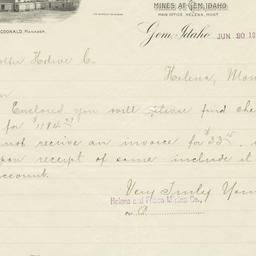 MINES AT GEM, IDAHO
MAIN OFFICE, HELENA, MONT.
CDONALD, MANAGER.
Gem, Idaho JUN 20 18
Hdwe C.
Helena, Mon
Enclosed you will please find che
for $
not receive an invoice for $33
upon receipt of same include it
account.
Very Truly Your
Helena and Frisco Mining Co.,